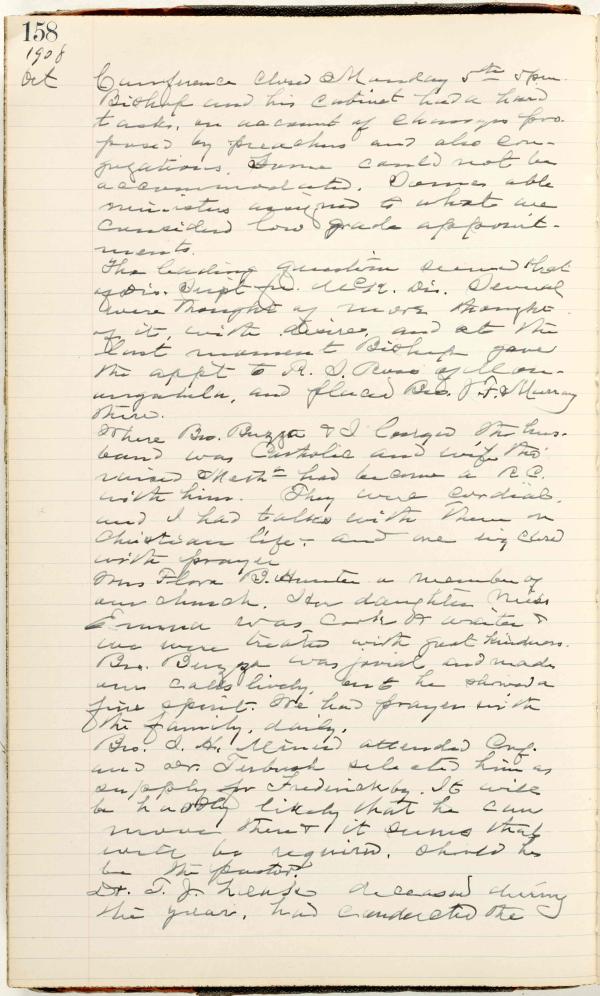 158
1908
Oct
Cumference closed Monday 5th 5pm.
Bishop and his cabinet had a hard
tasks, on account of changes pro-
posed by preachers and also con-
gregations. Some could not be
accommodated. Some able
ministers assigned to what are
considered low grade appoint-
ments.
The leading question seemed that
of Dis. Supt for McK. Dis. Several
were thought of more thought
of it, with desires, and at the
last moment Bishop gave
the appt to R. S. Ross of Mon-
ungahela, and placed Bro. J. F. Murray
there.
Where Bro. Buzza & I lodged the hus-
band was Catholic and wife tho
raised Meth. had become a R.C.
with him. They were cordial,
and I had talks with them on
Christian life - and we
with prayer
Mrs Flora B. Hunter a member of
our church. Her daughter Miss
Emma was Cook & waiter &
we were treated with great kindness.
Bro. Buzza was jovial and made
our calls lively, but he showed a
fine spirit. We had prayer with
the family, daily.
Bro. I. H. attended Conf.
and Dr. Terbush selected him as
supply for Fredericksby. It will
be hardly likely that he can
move there & it seems that
will be required, should he
be the pastor.
Dr. T. J. Leak deceased during
the year, had conducted the